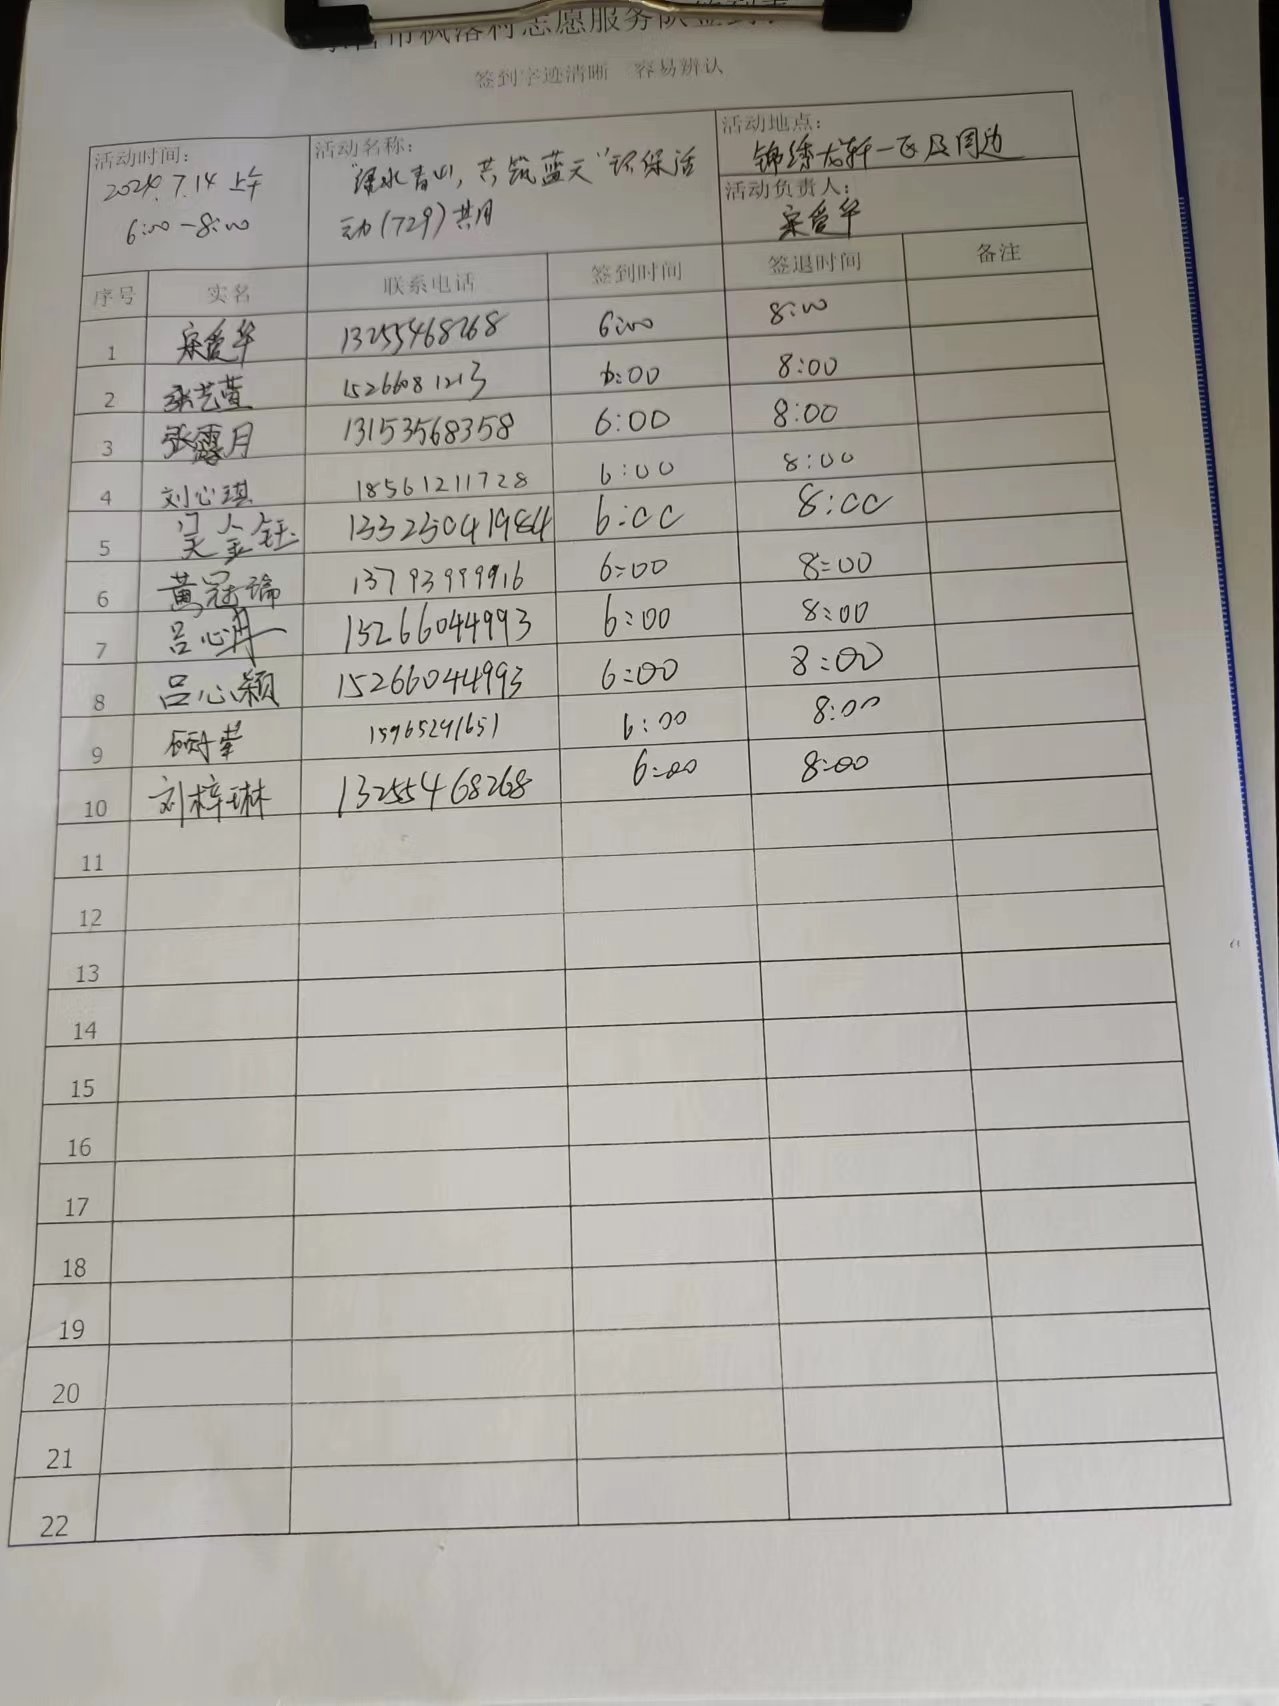 枫落村志愿服务队签到表
签到字迹清晰 容易辨认
活动时间：
2024.7.14 上午
6:00-8:00
活动名称：
"绿水青山，共筑蓝天"环保活
动(729)共用
活动地点：
锦绣龙轩一区及周边
活动负责人：
宋爱华
序号 实名 联系电话 签到时间 签退时间 备注
1 宋爱华 13255468268 6:00 8:00
2 张艺萱 15266081213 6:00 8:00
3 张露月 13153568358 6:00 8:00
4 刘心琪 18561211728 6:00 8:00
5 吴金钰 13325041984 6:00 8:00
6 黄冠瑜 13793999916 6:00 8:00
7 吕心舟 15266044993 6:00 8:00
8 吕心颖 15266044993 6:00 8:00
9 15965291651 6:00 8:00
10 刘梓琳 13255468268 6:00 8:00
11
12
13
14
15
16
17
18
19
20
21
22